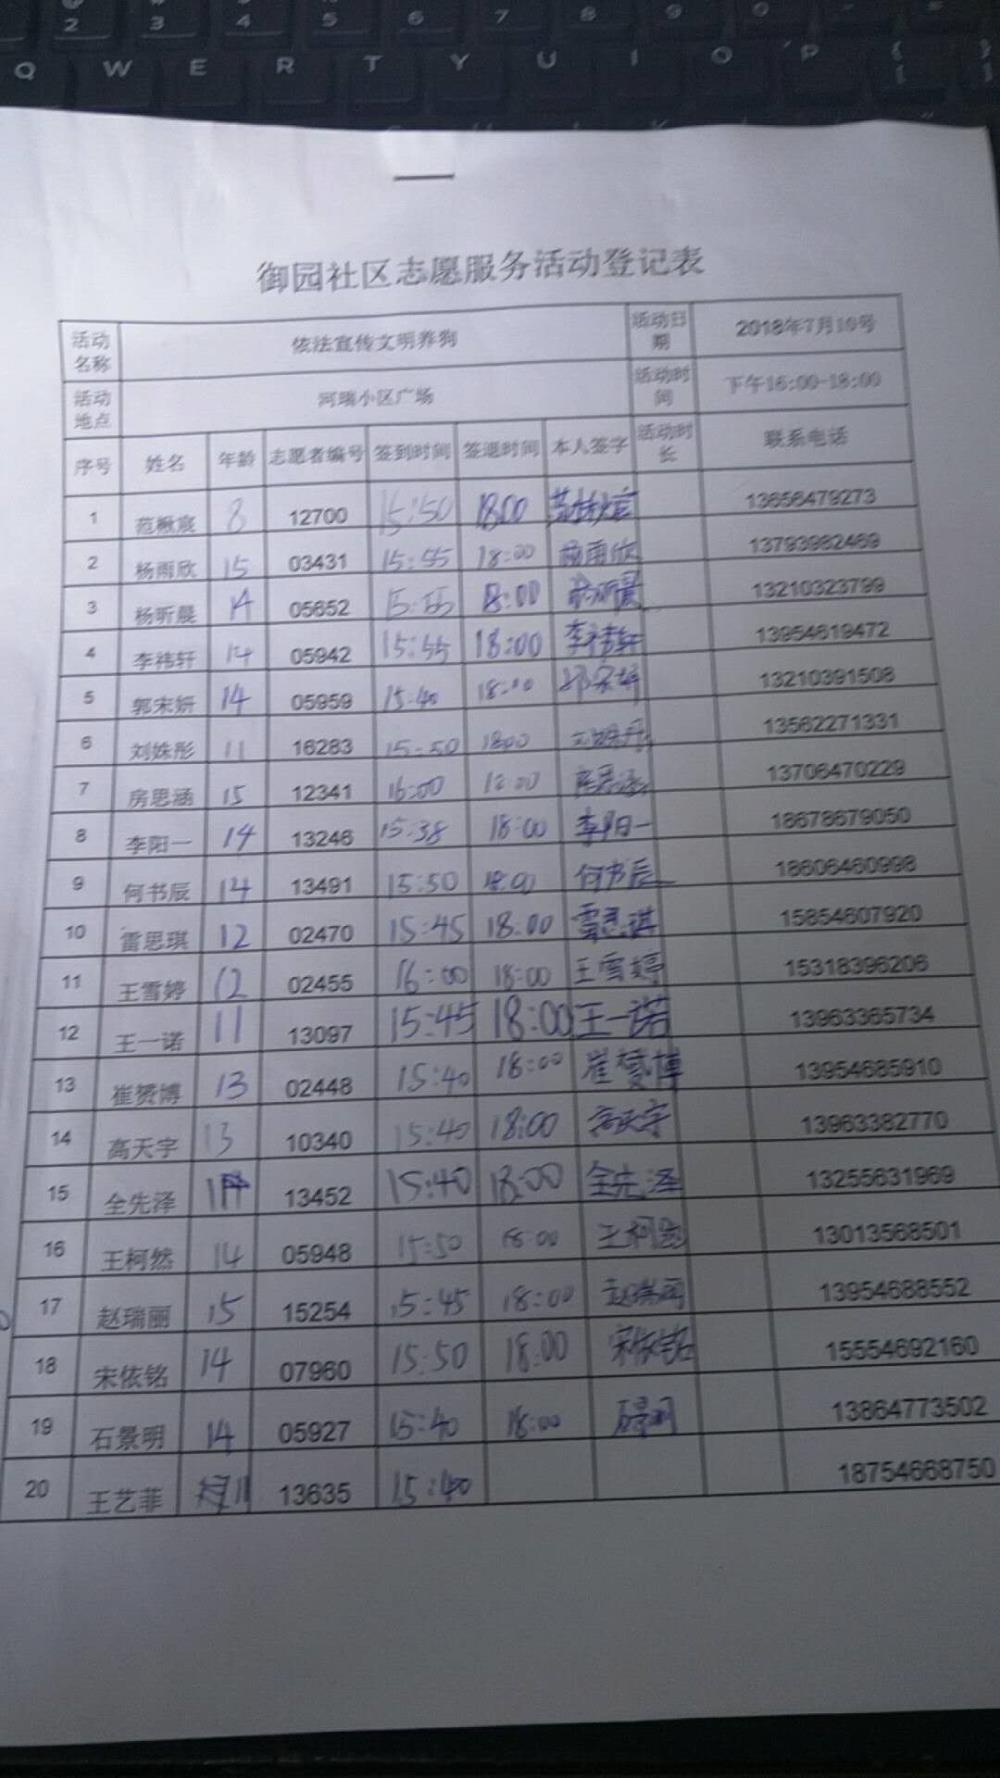 Q W E R T Y U I O P
御园社区志愿服务活动登记表
活动名称 依法宣传文明养狗 活动日期 2018年7月10号
活动地点 河瑞小区广场 活动时间 下午16:00-18:00
序号 姓名 年龄 志愿者编号 签到时间 签退时间 本人签字 活动时长 联系电话
1 范楸宸 8 12700 15:50 18:00 范楸宸 13656479273
2 杨雨欣 15 03431 15:55 18:00 杨雨欣 13793982469
3 杨昕晨 14 05652 15:55 18:00 杨昕晨 13210323799
4 李祎轩 14 05942 15:55 18:00 李祎轩 13954619472
5 郭宋妍 14 05959 15:40 18:00 郭宋妍 13210391508
6 刘姝彤 11 16283 15:50 18:00 刘姝彤 13562271331
7 房思涵 15 12341 16:00 18:00 房思涵 13706470229
8 李阳一 14 13246 15:38 18:00 李阳一 18678679050
9 何书辰 14 13491 15:50 18:00 何书辰 18606460998
10 雷思琪 12 02470 15:45 18:00 雷思琪 15854607920
11 王雪婷 12 02455 16:00 18:00 王雪婷 15318396206
12 王一诺 11 13097 15:45 18:00 王一诺 13963365734
13 崔赟博 13 02448 15:40 18:00 崔赟博 13954685910
14 高天宇 13 10340 15:40 18:00 高天宇 13963382770
15 全先泽 13452 15:40 18:00 全先泽 13255631969
16 王柯然 14 05948 15:50 18:00 王柯然 13013568501
17 赵瑞丽 15 15254 15:45 18:00 赵瑞丽 13954688552
18 宋依铭 14 07960 15:50 18:00 宋依铭 15554692160
19 石景明 14 05927 15:40 18:00 石景明 13864773502
20 王艺菲 11 13635 15:40 18754668750